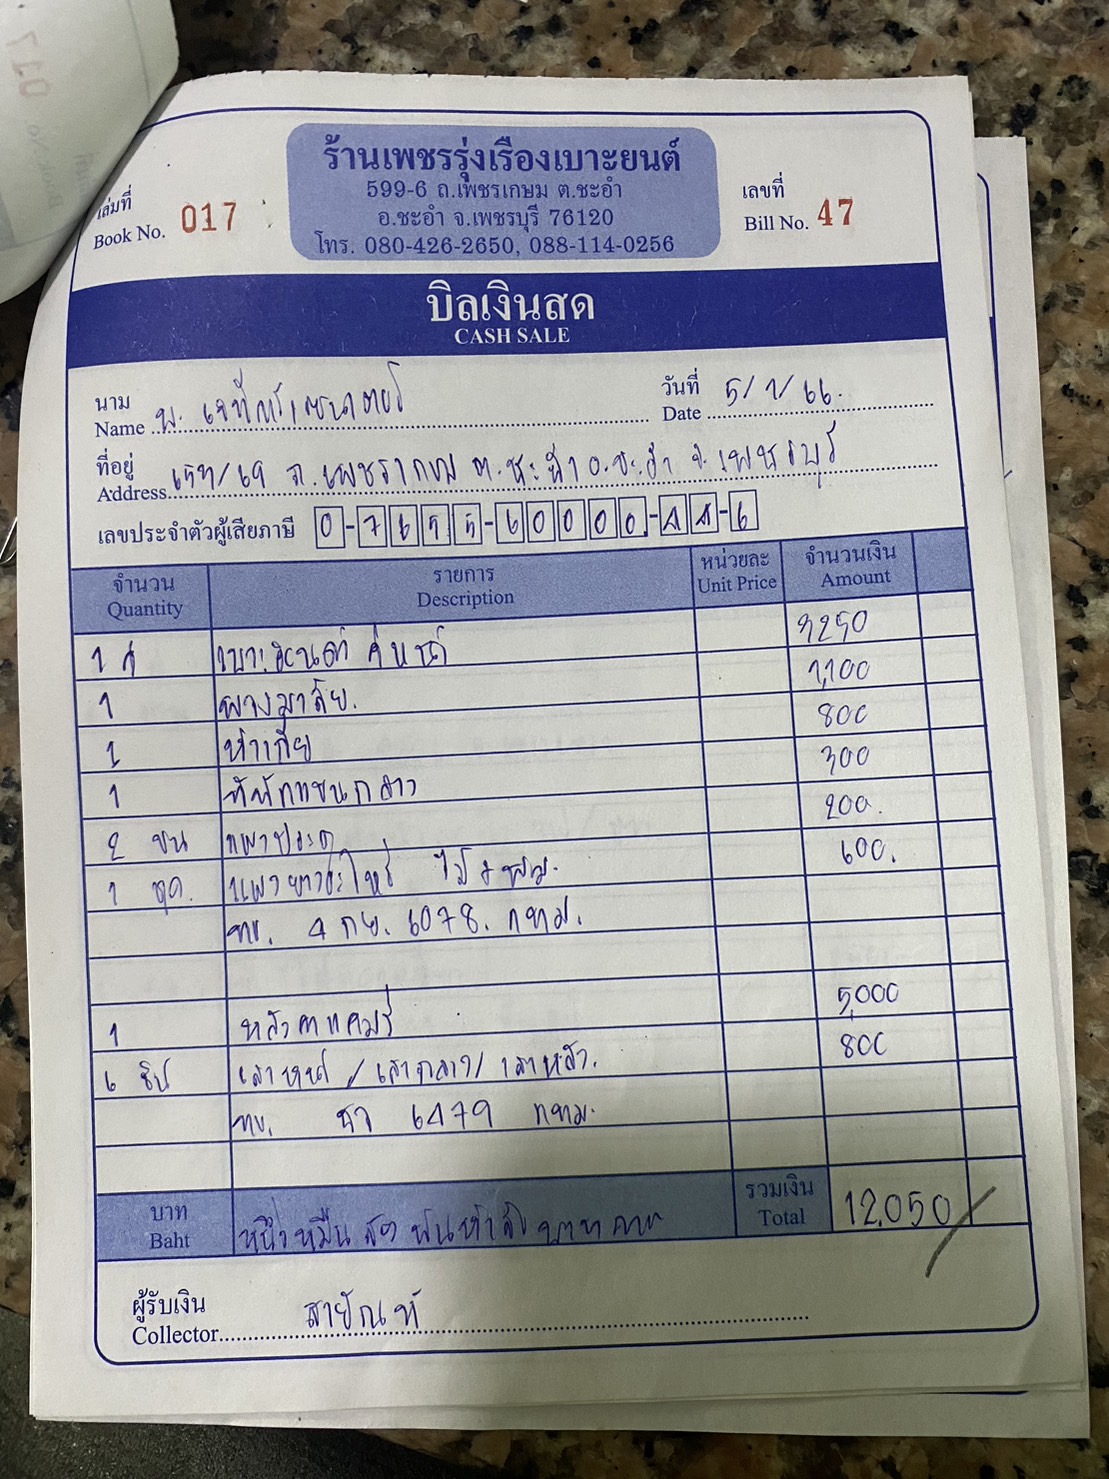 ร้านเพชรรุ่งเรืองเบาะยนต์
599-6 ถ.เพชรเกษม ต.ชะอำ
อ.ชะอำ จ.เพชรบุรี 76120
โทร. 080-426-2650, 088-114-0256
เล่มที่
Book No. 017
เลขที่
Bill No. 47
บิลเงินสด
CASH SALE
นาม
Name
วันที่ 5/1/66.
Date
ที่อยู่
Address ถ.เพชรเกษม ต.ชะอำ อ.ชะอำ จ.เพชรบุรี
เลขประจำตัวผู้เสียภาษี 0-7655-60000-44-6
จำนวน รายการ หน่วยละ จำนวนเงิน
Quantity Description Unit Price Amount
1 คู่ 3250
1 พวงมาลัย. 1,100
1 หัวเกียร์ 800
1 ที่พักแขนกลาง 300
2 200.
1 ชุด. 600.
ทบ. 4 กย. 6078. กทม.
1 หลังคาแคมรี่ 5,000
6 ชิ้น เสาหน้า / เสากลาง / เสาหลัง. 800
ทบ. 6479 กทม.
บาท
Baht หนึ่งหมื่นสองพันห้าสิบบาทถ้วน
รวมเงิน
Total 12,050
ผู้รับเงิน
Collector สายัณห์